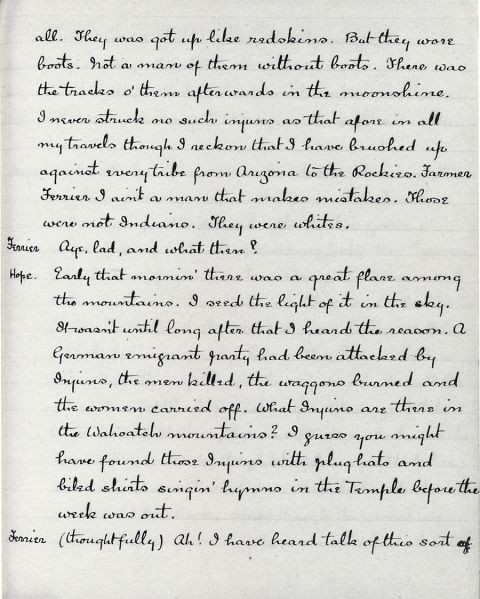 all. They was got up like redskins. But they wore
boots. Not a man of them without boots. There was
the tracks o' them afterwards in the moonshine.
I never struck no such injuns as that afore in all
my travels though I reckon that I have brushed up
against every tribe from Arizona to the Rockies. Farmer
Ferrier I ain't a man that makes mistakes. Those
were not Indians. They were whites.
Ferrier Aye, lad, and what then?
Hope. Early that mornin' there was a great flare among
the mountains. I seed the light of it in the sky.
It wasn't until long after that I heard the reason. A
German emigrant party had been attacked by
Injuns, the men killed, the waggons burned and
the women carried off. What Injuns are there in
the Wahsatch mountains? I guess you might
have found those Injuns with plug hats and
biled shirts singin' hymns in the Temple before the
week was out.
Ferrier (thoughtfully) Ah! I have heard talk of this sort of